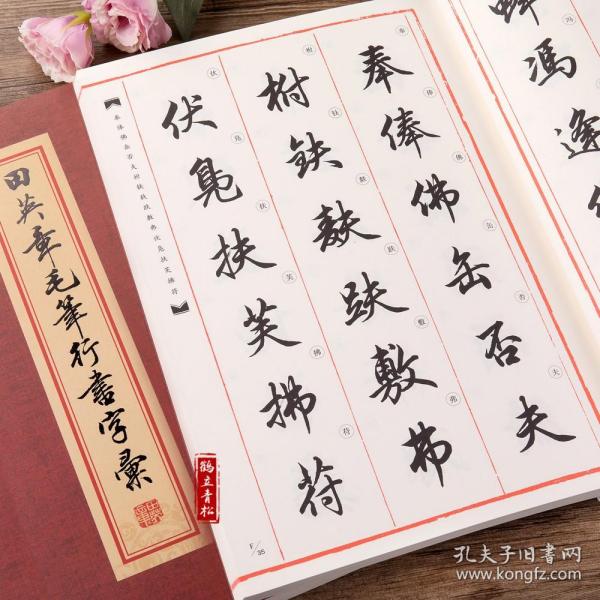 田英章毛筆行書字彙
奉俸佛缶否夫
柎鈇麩趺敷弗
伏凫扶芙拂符
奉俸佛缶否夫柎鈇麸趺敷弗伏凫扶芙拂符
F/35
馮逢
冯
鹤立青松
孔夫子旧书网
www.kongfz.com